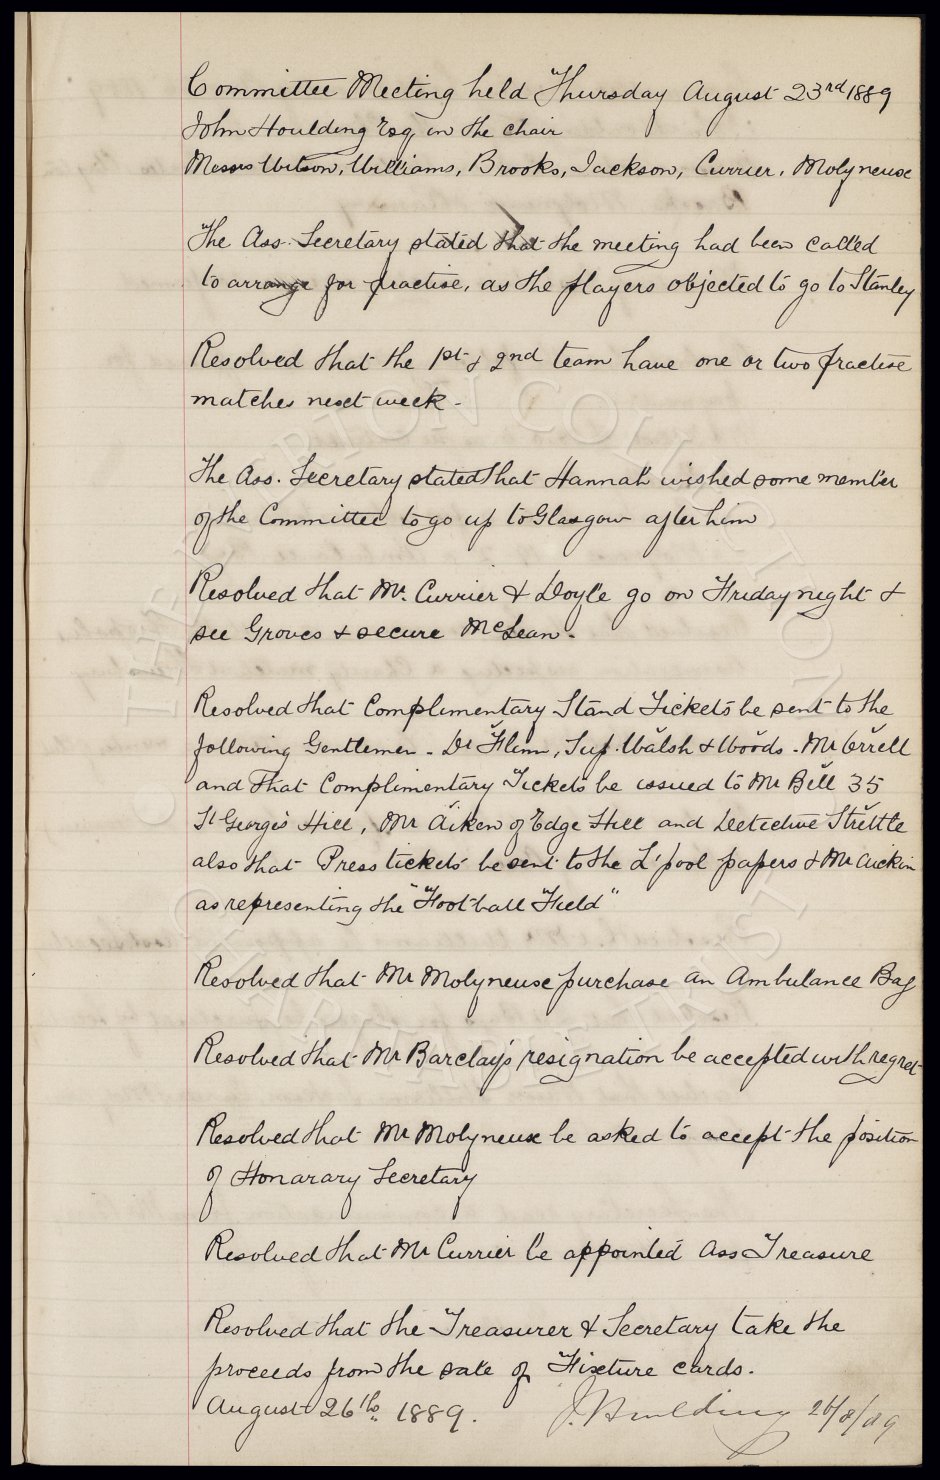 Committee Meeting held Thursday August 23rd 1889
John Houlding Esq in the chair
Messrs Wilson, Williams, Brooks, Jackson, Currier, Molyneux
The Ass. Secretary stated that the meeting had been called
to arrange for practise, as the players objected to go to Stanley
Resolved that the 1st & 2nd team have one or two practise
matches next week.
The Ass. Secretary stated that Hannah wished some member
of the Committee to go up to Glasgow after him
Resolved that Mr. Currier & Doyle go on Friday night &
see Groves & secure McLean.
Resolved that Complimentary Stand Tickets be sent to the
following Gentlemen - Dr Flinn, Sup. Walsh & Woods. Mr Errell
and that Complimentary Tickets be issued to Mr Bell 35
St Georges Hill, Mr Aiken of Edge Hill and Detective Strettle
also that Press tickets be sent to the L'pool papers & Mr Aickin
as representing the "Football Field"
Resolved that Mr Molyneux purchase an Ambulance Bag
Resolved that Mr Barclay's resignation be accepted with regret
Resolved that Mr Molyneux be asked to accept the position
of Honarary Secretary
Resolved that Mr Currier be appointed Ass Treasure
Resolved that the Treasurer & Secretary take the
proceeds from the sale of Fixture cards.
August 26th 1889. J. Houlding 26/8/89
THE EVERTON COLLECTION
CHARITABLE TRUST